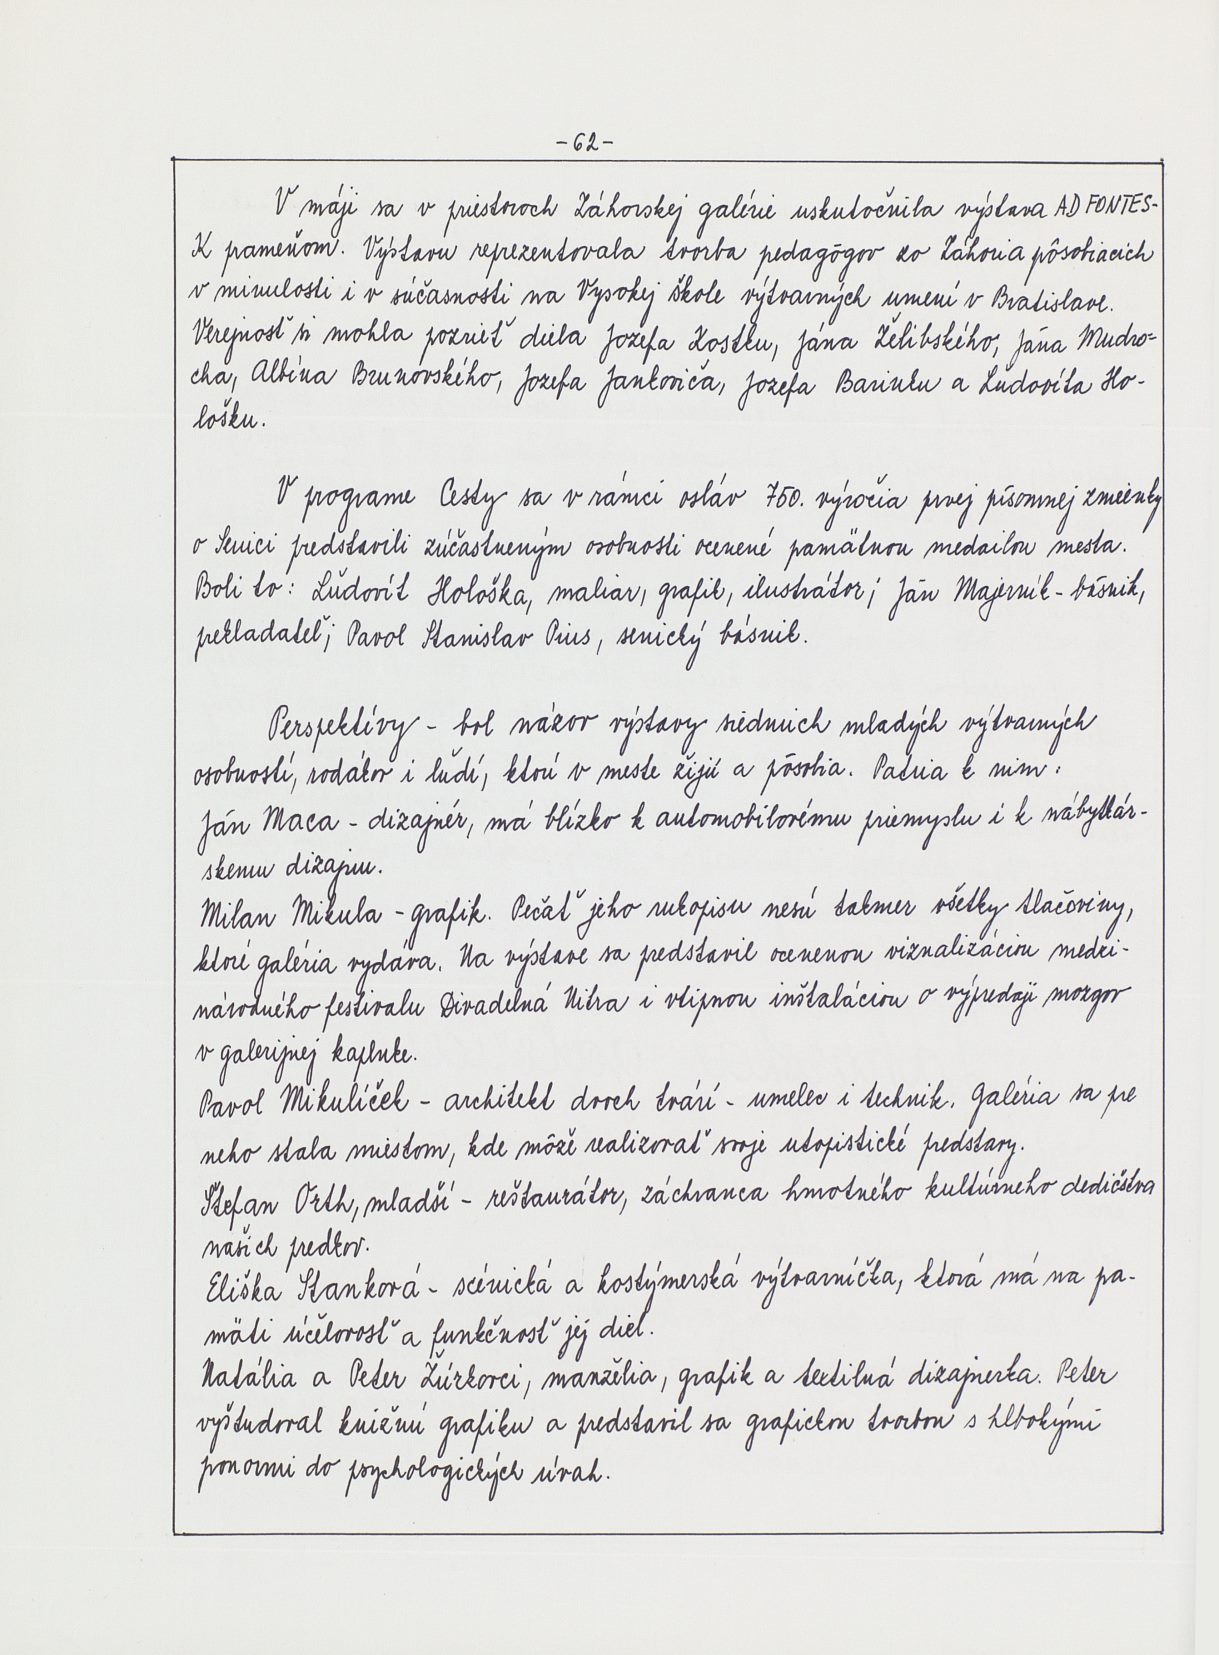 -62-
V máji sa v priestoroch Záhorskej galérie uskutočnila výstava AD FONTES-
K prameňom. Výstavu reprezentovala tvorba pedagógov zo Záhoria pôsobiacich
v minulosti i v súčasnosti na Vysokej škole výtvarných umení v Bratislave.
Verejnosť si mohla pozrieť diela Jozefa Kostku, Jána Želibského, Jána Mudro-
cha, Albína Brunovského, Jozefa Jankoviča, Jozefa Barinku a Ľudovíta Ho-
lošku.
V programe Cesty sa v rámci osláv 750. výročia prvej písomnej zmienky
o Senici predstavili zúčastneným osobnosti ocenené pamätnou medailou mesta.
Boli to: Ľudovít Hološka, maliar, grafik, ilustrátor; Ján Majerník - básnik,
prekladateľ; Pavol Stanislav Pius, senický básnik.
Perspektívy - bol názov výstavy siedmich mladých výtvarných
osobností, rodákov i ľudí, ktorí v meste žijú a pôsobia. Patria k nim:
Ján Maca - dizajnér, má blízko k automobilovému priemyslu i k nábytkár-
skemu dizajnu.
Milan Mikula - grafik. Pečať jeho rukopisu nesú takmer všetky tlačoviny,
ktoré galéria vydáva. Na výstave sa predstavil ocenenou vizualizáciou medzi-
národného festivalu Divadelná Nitra i vtipnou inštaláciou o výpredaji mozgov
v galerijnej kaplnke.
Pavol Mikulíček - architekt dvoch tvárí - umelec i technik. Galéria sa pre
neho stala miestom, kde môže realizovať svoje utopistické predstavy.
Štefan Orth, mladší - reštaurátor, záchranca hmotného kultúrneho dedičstva
našich predkov.
Eliška Stanková - scénická a kostýmerská výtvarníčka, ktorá má na pa-
mäti účelovosť a funkčnosť jej diel.
Natália a Peter Žúrkovci, manželia, grafik a textilná dizajnerka. Peter
vyštudoval knižnú grafiku a predstavil sa grafickou tvorbou s hlbokými
ponormi do psychologických úvah.